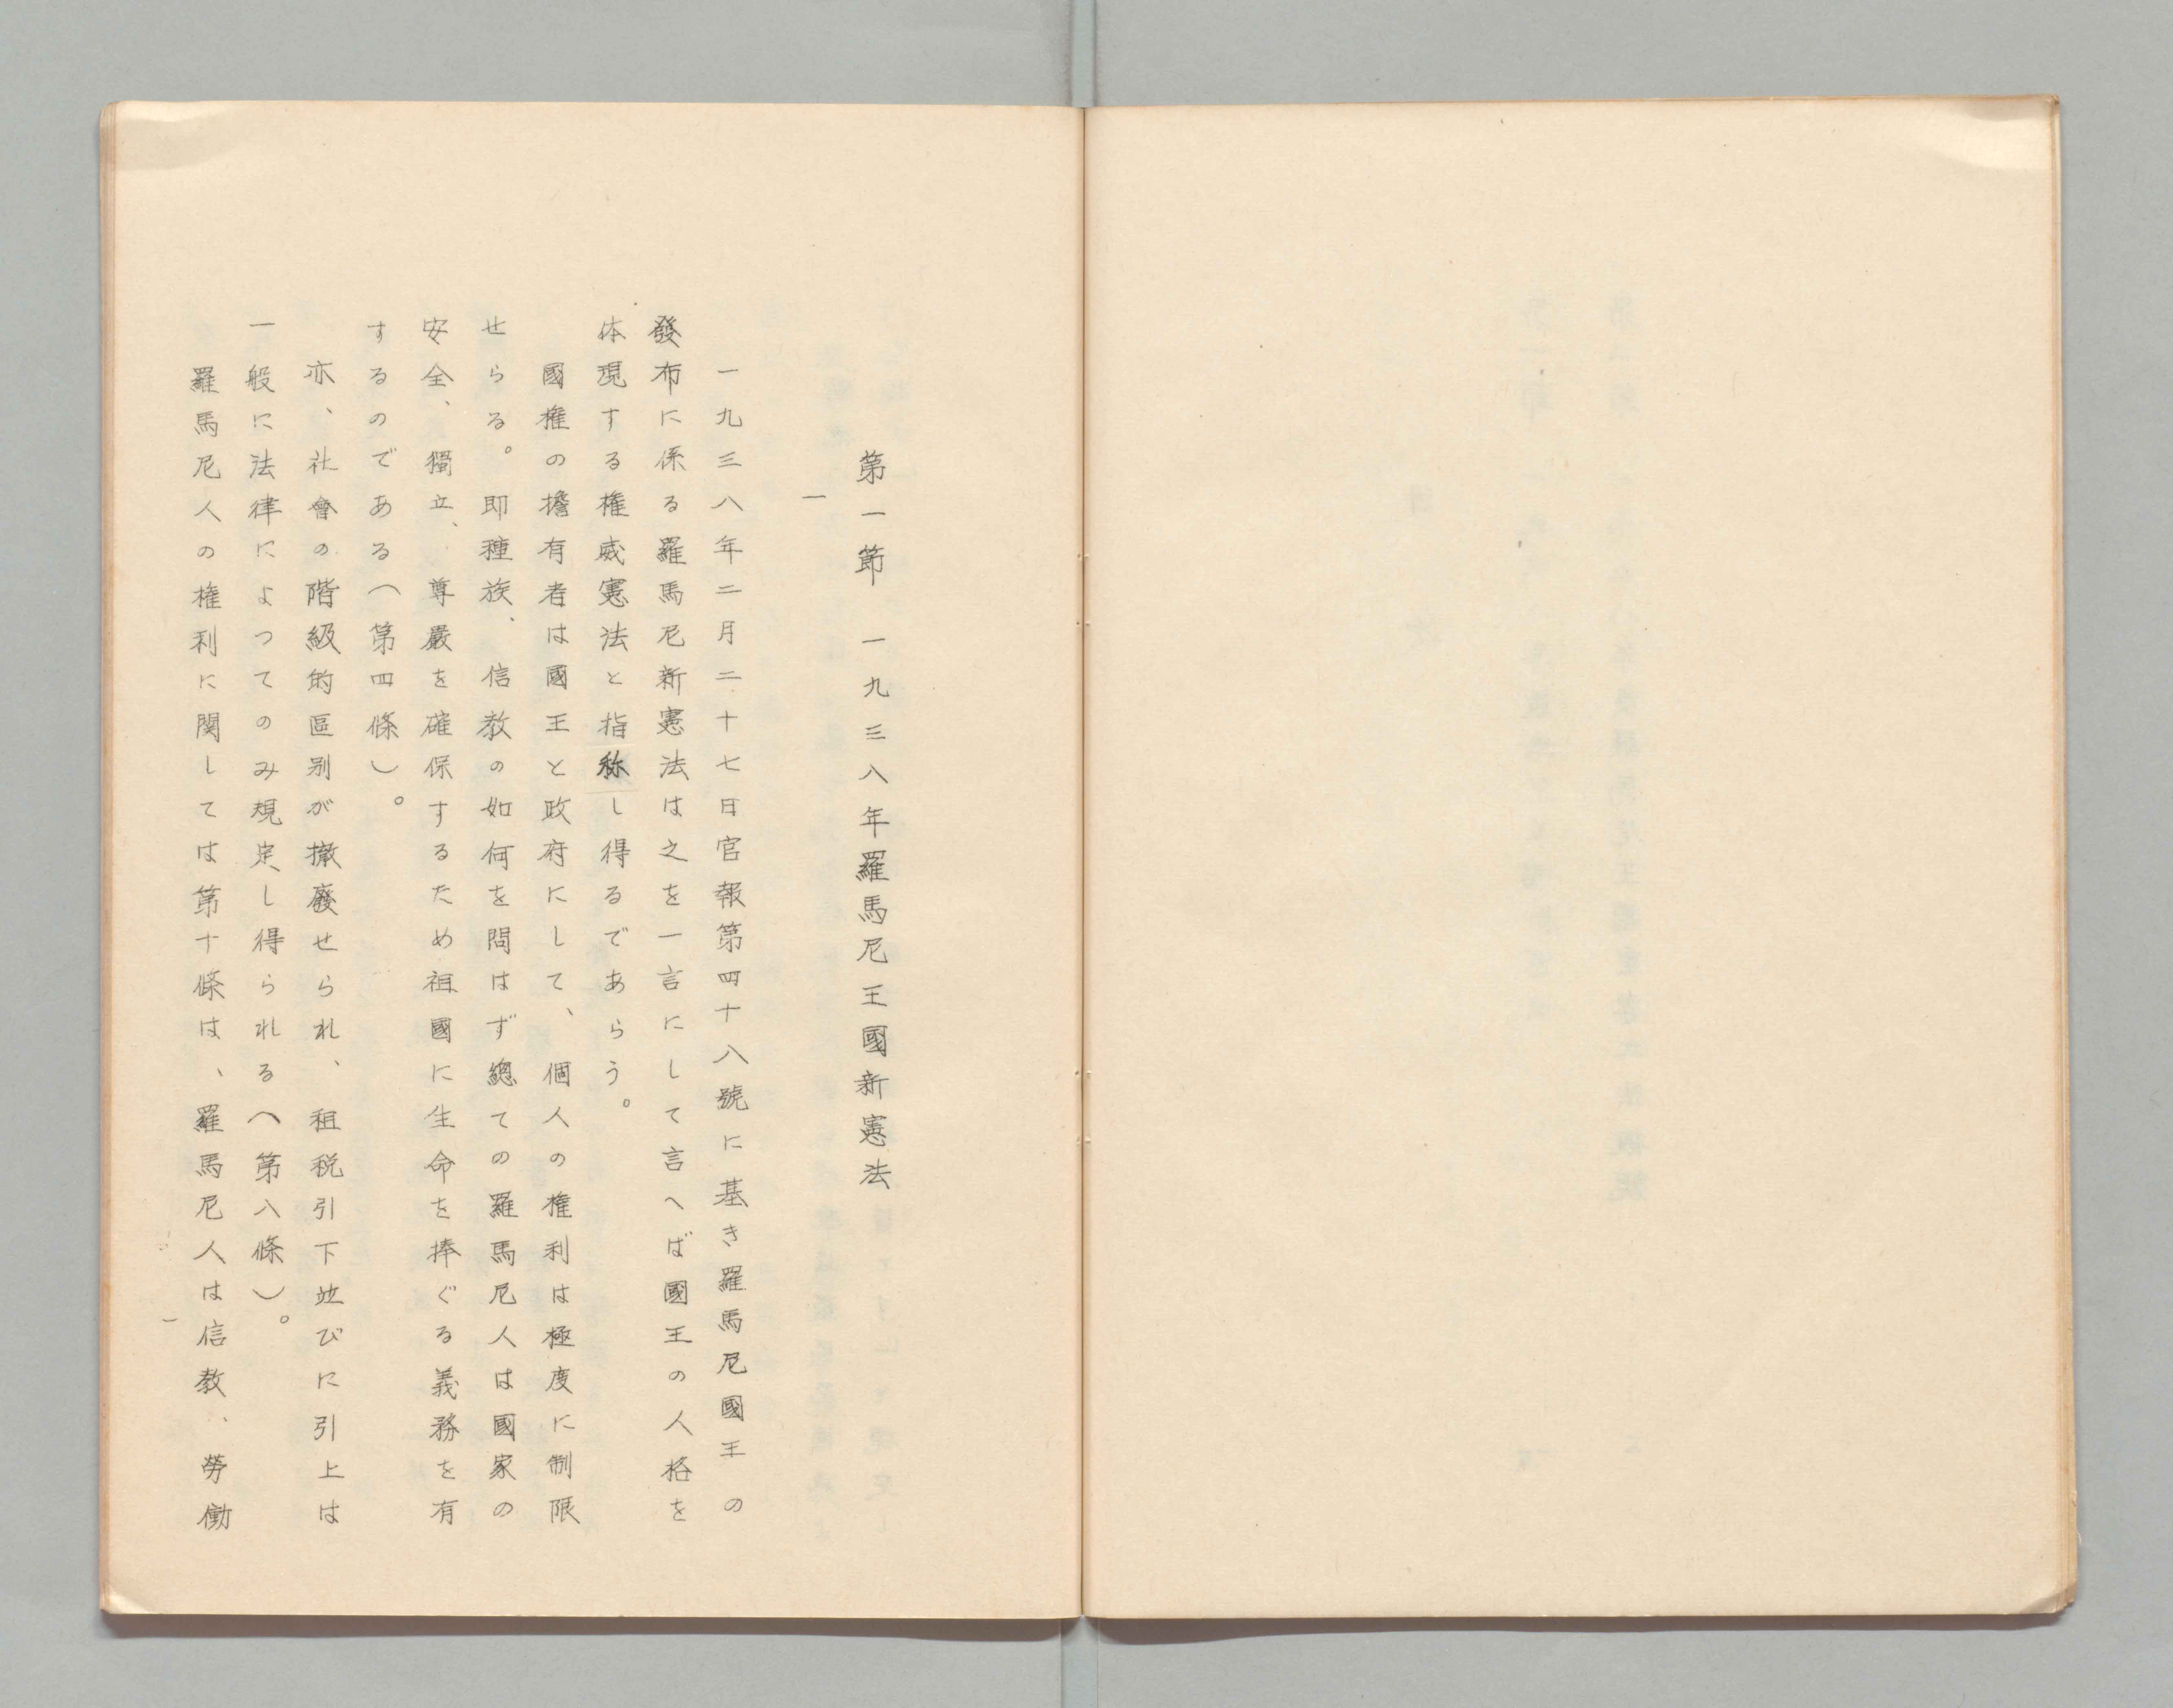 第一節　一九三八年羅馬尼王國新憲法
一
一九三八年二月二十七日官報第四十八號に基き羅馬尼國王の
發布に係る羅馬尼新憲法は之を一言にして言へば國王の人格を
体現する権威憲法と指称し得るであらう。
國権の擔有者は國王と政府にして、個人の権利は極度に制限
せらる。即種族、信教の如何を問はず總ての羅馬尼人は國家の
安全、獨立、尊嚴を確保するため祖國に生命を捧ぐる義務を有
するのである（第四條）。
亦、社會の階級的區別が撤廢せられ、租税引下竝びに引上は
一般に法律によつてのみ規定し得られる（第八條）。
羅馬尼人の権利に関しては第十條は、羅馬尼人は信教、勞働
一